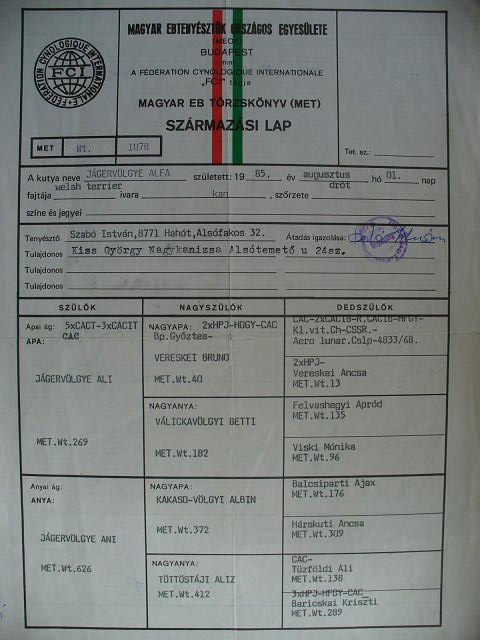 MAGYAR EBTENYÉSZTŐK ORSZÁGOS EGYESÜLETE
(MEOE)
BUDAPEST
mint
A FÉDÉRATION CYNOLOGIQUE INTERNATIONALE
„FCI” tagja
FEDERATION CYNOLOGIQUE INTERNATIONALE
FCI
MAGYAR EB TÖRZSKÖNYV (MET)
SZÁRMAZÁSI LAP
MET Wt. 1078
Tet. sz.:
A kutya neve JÁGERVÖLGYE ALFA született: 19 85. év augusztus hó 01. nap
fajtája welsh terrier ivara kan, szőrzete drót
színe és jegyei
Tenyésztő Szabó István,8771 Hahót,Alsófakos 32. Átadás igazolása:
Tulajdonos Kiss György Nagykanizsa Alsótemető u 24sz.
Tulajdonos
Tulajdonos
SZÜLŐK NAGYSZÜLŐK DÉDSZÜLŐK
Apai ág: 5xCACT-3xCACIT
CAC
APA:
JÁGERVÖLGYE ALI
MET.Wt.269
NAGYAPA: 2xHPJ-HDGY-CAC
Bp.Győztes-
VERESKEI BRUNO
MET.Wt.40
Kl.vit.Ch-CSSR.-
Aero lunar.Cslp-4833/68.
2xHPJ-
Vereskei Anca
MET.Wt.13
NAGYANYA:
VÁLICKAVÖLGYI BETTI
MET.Wt.182
Felvashegyi Apród
MET.Wt.135
Viski Mónika
MET.Wt.96
Anyai ág:
ANYA:
JÁGERVÖLGYE ANI
MET.Wt.626
NAGYAPA:
KAKASD-VÖLGYI ALBIN
MET.Wt.372
Balcsiparti Ajax
MET.Wt.176
Hárskuti Ancsa
MET.Wt.309
NAGYANYA:
TÖTTÖSTÁJI ALIZ
MET.Wt.412
CAC-
Tüzföldi Ali
MET.Wt.138
3xHPJ-HFGY-CAC
Baricskai Kriszti
MET.Wt.289